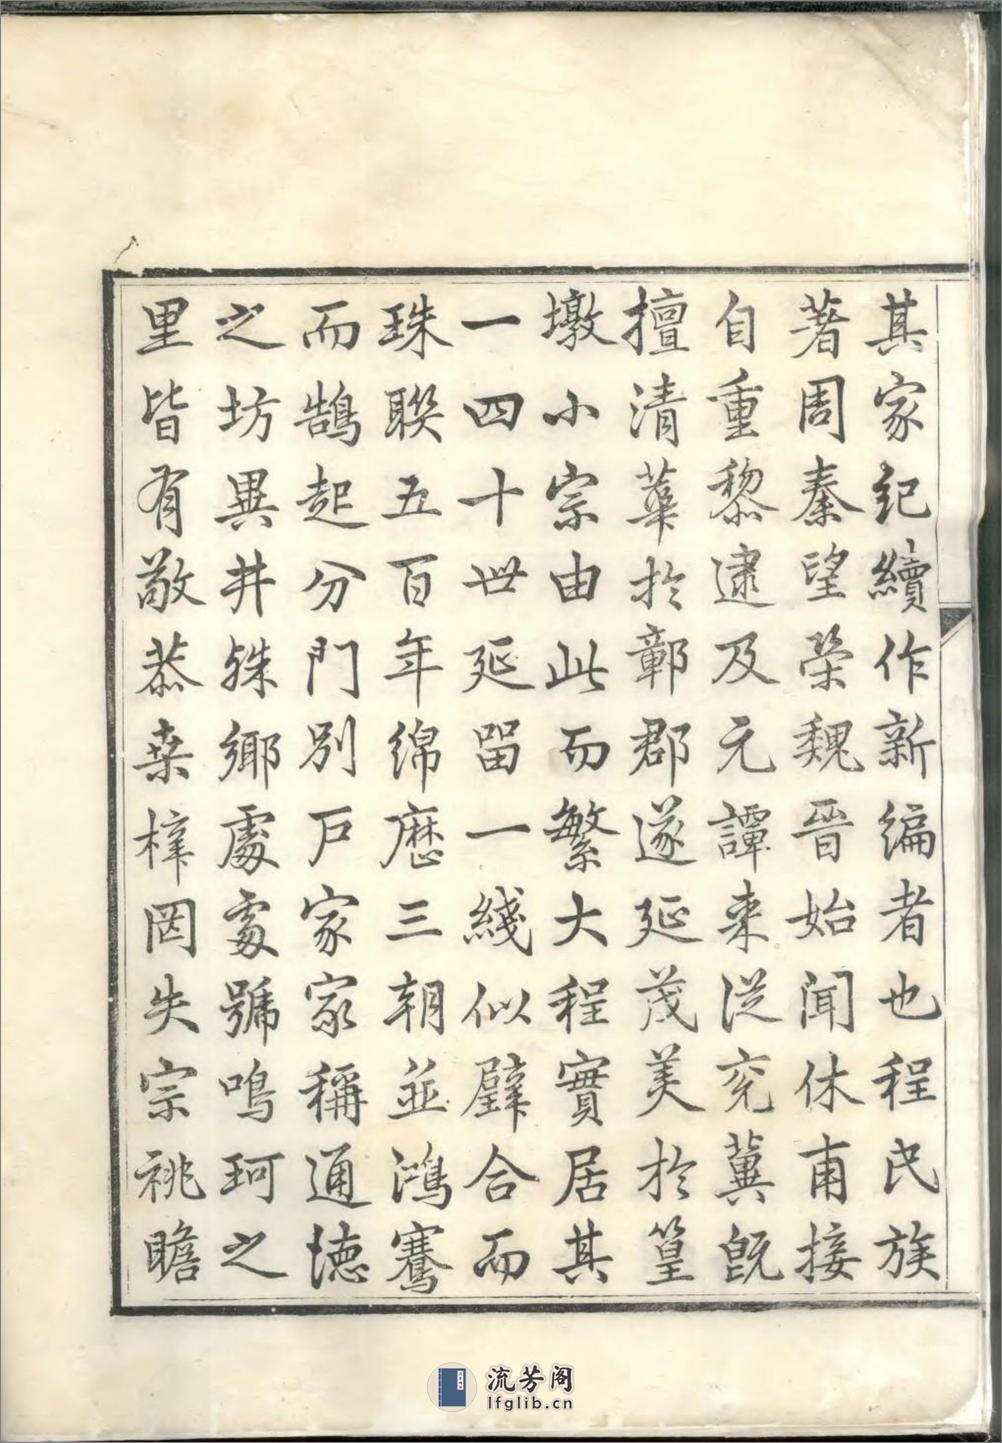 其家紀續作新編者也程氏族
著周秦望榮魏晉始聞休甫接
自重黎逮及元譚来從兖冀旣
擅清華於鄣郡遂延茂美於篁
墩小宗由此而繁大程實居其
一四十世延留一綫似璧合而
珠聯五百年綿歷三朝並鴻騫
而鵠起分門別戶家家稱通徳
之坊異井殊鄉處處號鳴珂之
里皆有敬恭桑梓罔失宗祧瞻
流芳阁
lfglib.cn